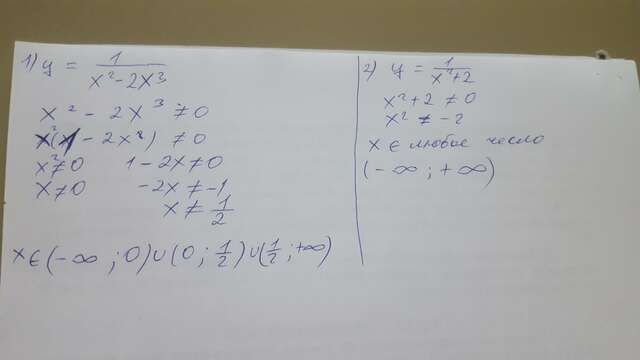 1) y = 1/(x² - 2x³)
x² - 2x³ ≠ 0
x²(1 - 2x) ≠ 0
x² ≠ 0 1 - 2x ≠ 0
x ≠ 0 -2x ≠ -1
x ≠ 1/2
x ∈ (-∞ ; 0) ∪ (0 ; 1/2) ∪ (1/2 ; +∞)
2) y = 1/(x²+2)
x² + 2 ≠ 0
x² ≠ -2
x ∈ любое число
(-∞ ; +∞)